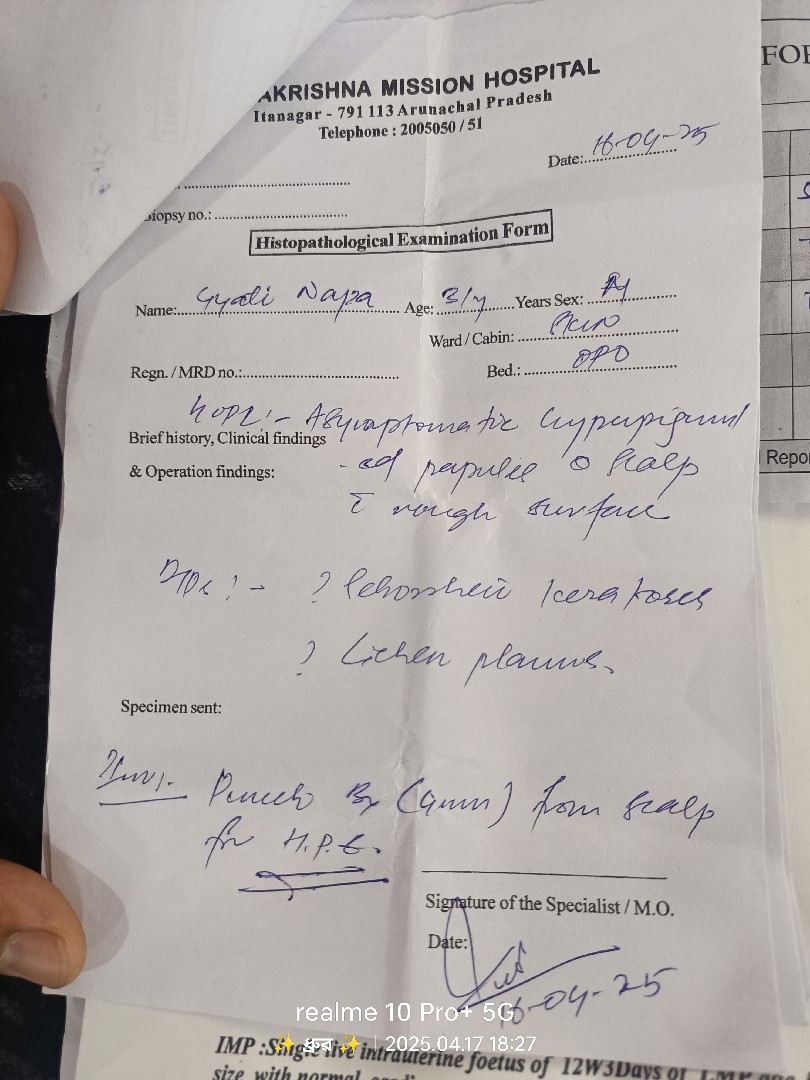 AKRISHNA MISSION HOSPITAL
Itanagar - 791 113 Arunachal Pradesh
Telephone : 2005050 / 51
Date: 16-04-25
Biopsy no.:
Histopathological Examination Form
Name: Gyati Napa Age: 3/y Years Sex:
Ward / Cabin: Skin
Regn. / MRD no.: Bed.: OPD
HOPI :- Asymptomatic hyperpigment
Brief history, Clinical findings
-ed papules scalp
& Operation findings:
c̄ rough surface
D/Ds :- ? Seborrheic keratoses
? Lichen planus.
Specimen sent:
Inv:- Punch Bx (4mm) from scalp
for H.P.E.
Signature of the Specialist / M.O.
Date:
16-04-25
realme 10 Pro+ 5G
2025.04.17 18:27
IMP :Single live intrauterine foetus of 12W3Days of LMP
size with normal
FOR
Repor